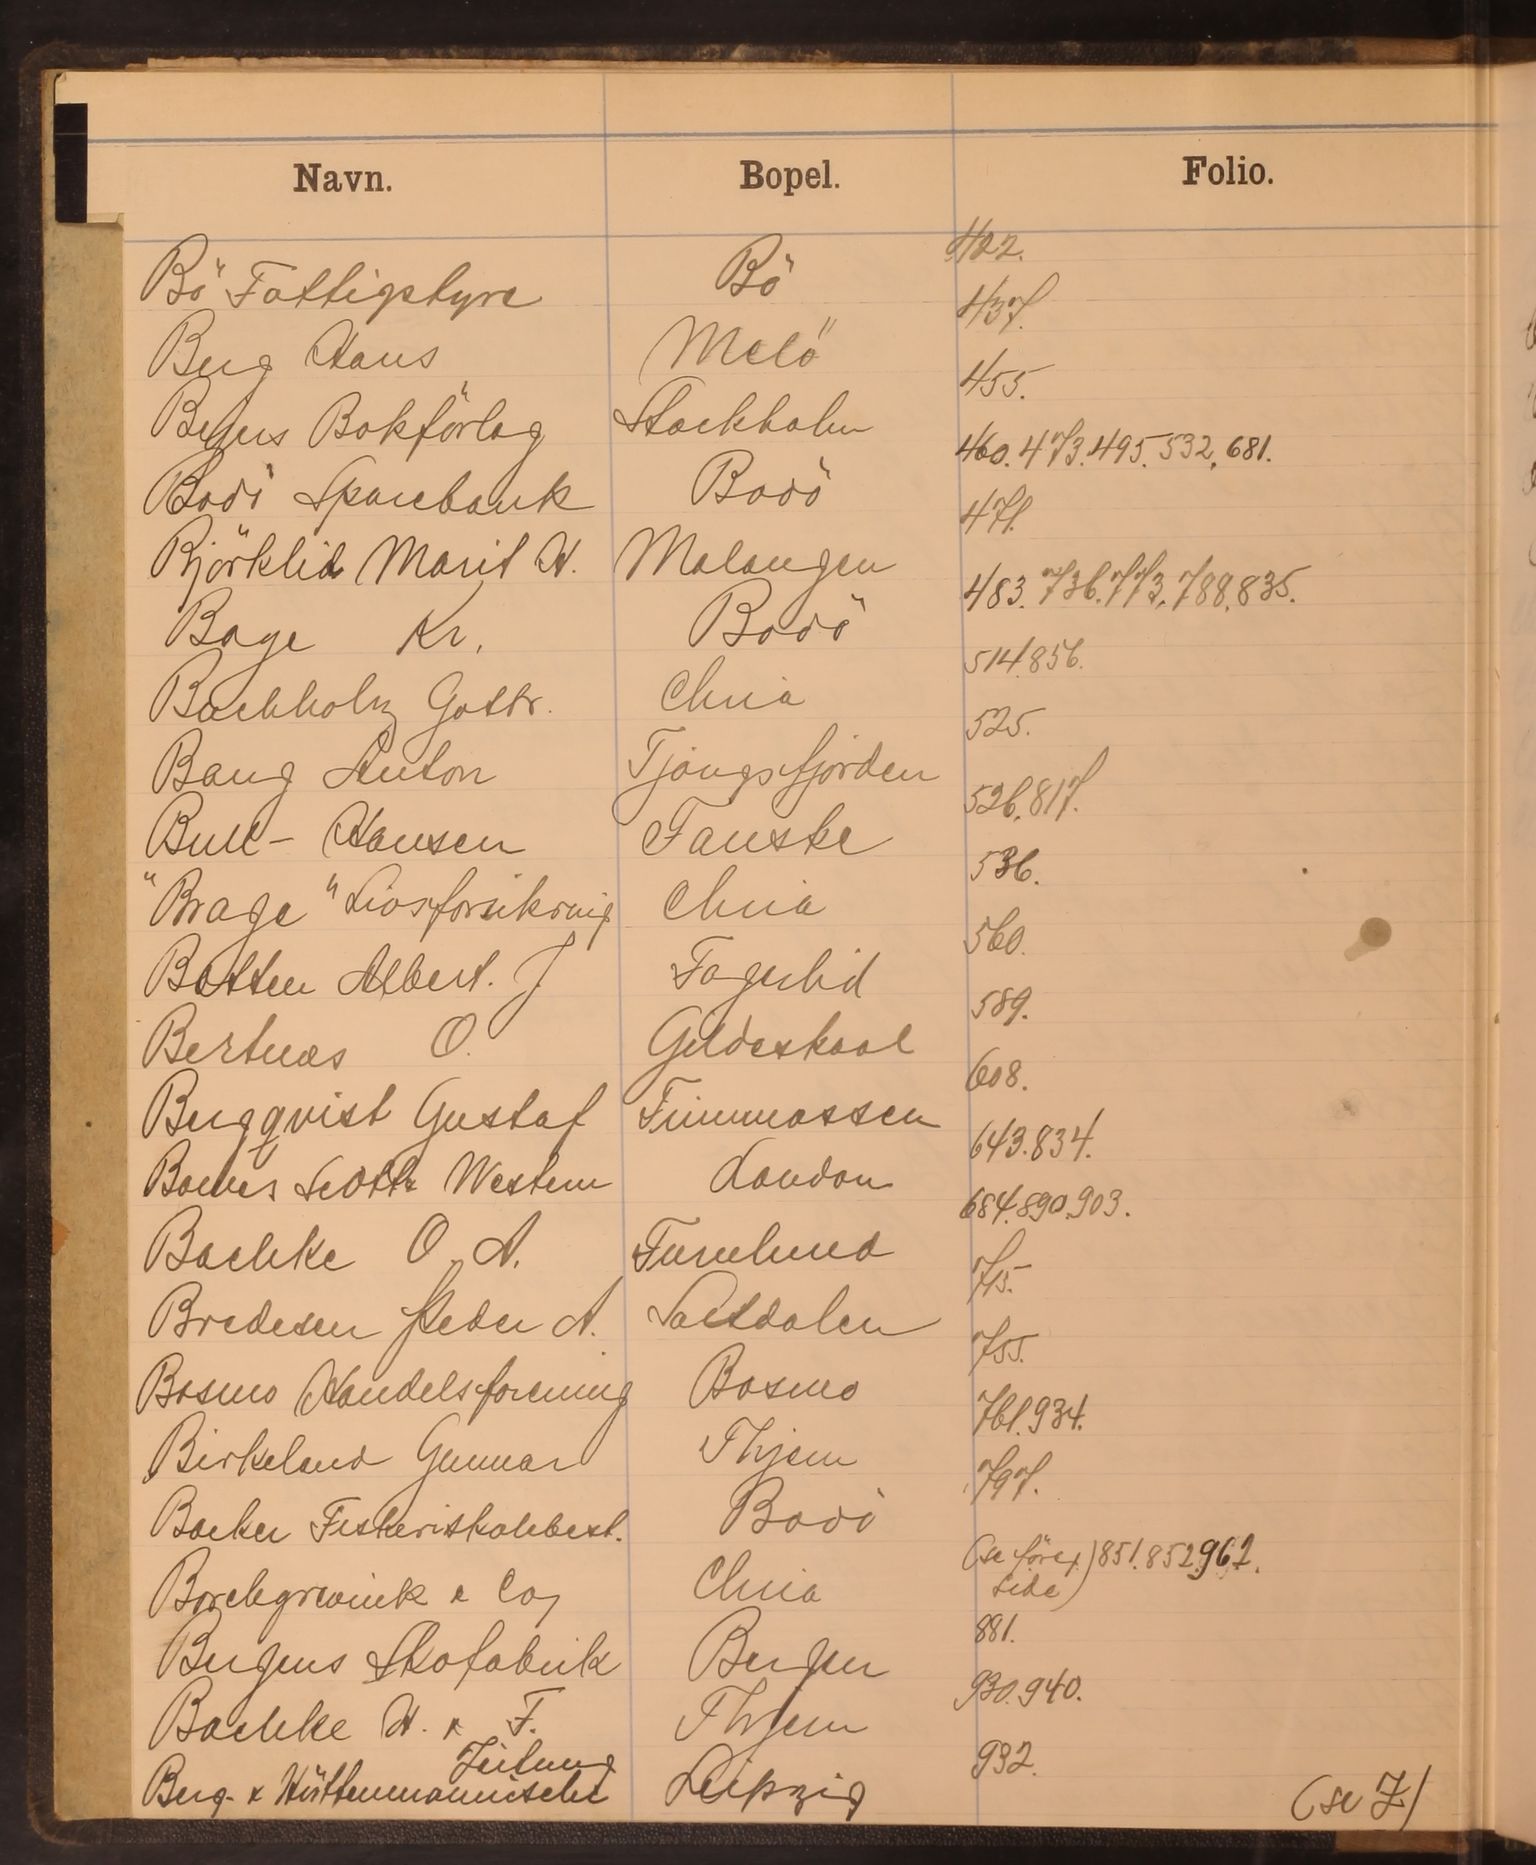 Navn. Bopel. Folio.
Bö Fattigstyre Bö 422.
Berg Hans Melö 437.
Beijers Bokförlag Stockholm 455.
Bodö Sparebank Bodö 460. 473. 495. 532, 681.
Björklid Marit H. Malangen 471.
Bage Kr. Bodö 483. 736. 773, 788, 835.
Buchholz Gottr. Chria 514. 856.
Bang Anton Tjongsfjorden 525.
Bull-Hansen Fauske 526, 817.
"Brage" Livsforsikring Chria 536.
Botten Albert. J Fagerlid 560.
Bertnæs O. Gildeskaal 589.
Bergqvist Gustaf Finnmossen 608.
Bowes Scott & Western London 643. 834.
Bachke O. A. Furulund 684. 890. 903.
Bredesen Peder A. Saltdalen 715.
Bosmo Handelsforening Bosmo 755.
Birkeland Gunnar Thjem 761. 934.
Backer Fiskeriskolebest. Bodö 797.
Borchgrevink & Co, Chria (se föreg. side) 851. 852. 962.
Bergens Skofabrik Bergen 881.
Bachke H. & F. Thjem 930. 940.
Berg- & Hüttenmännische Zeitung Leipzig 932.
(se Z)